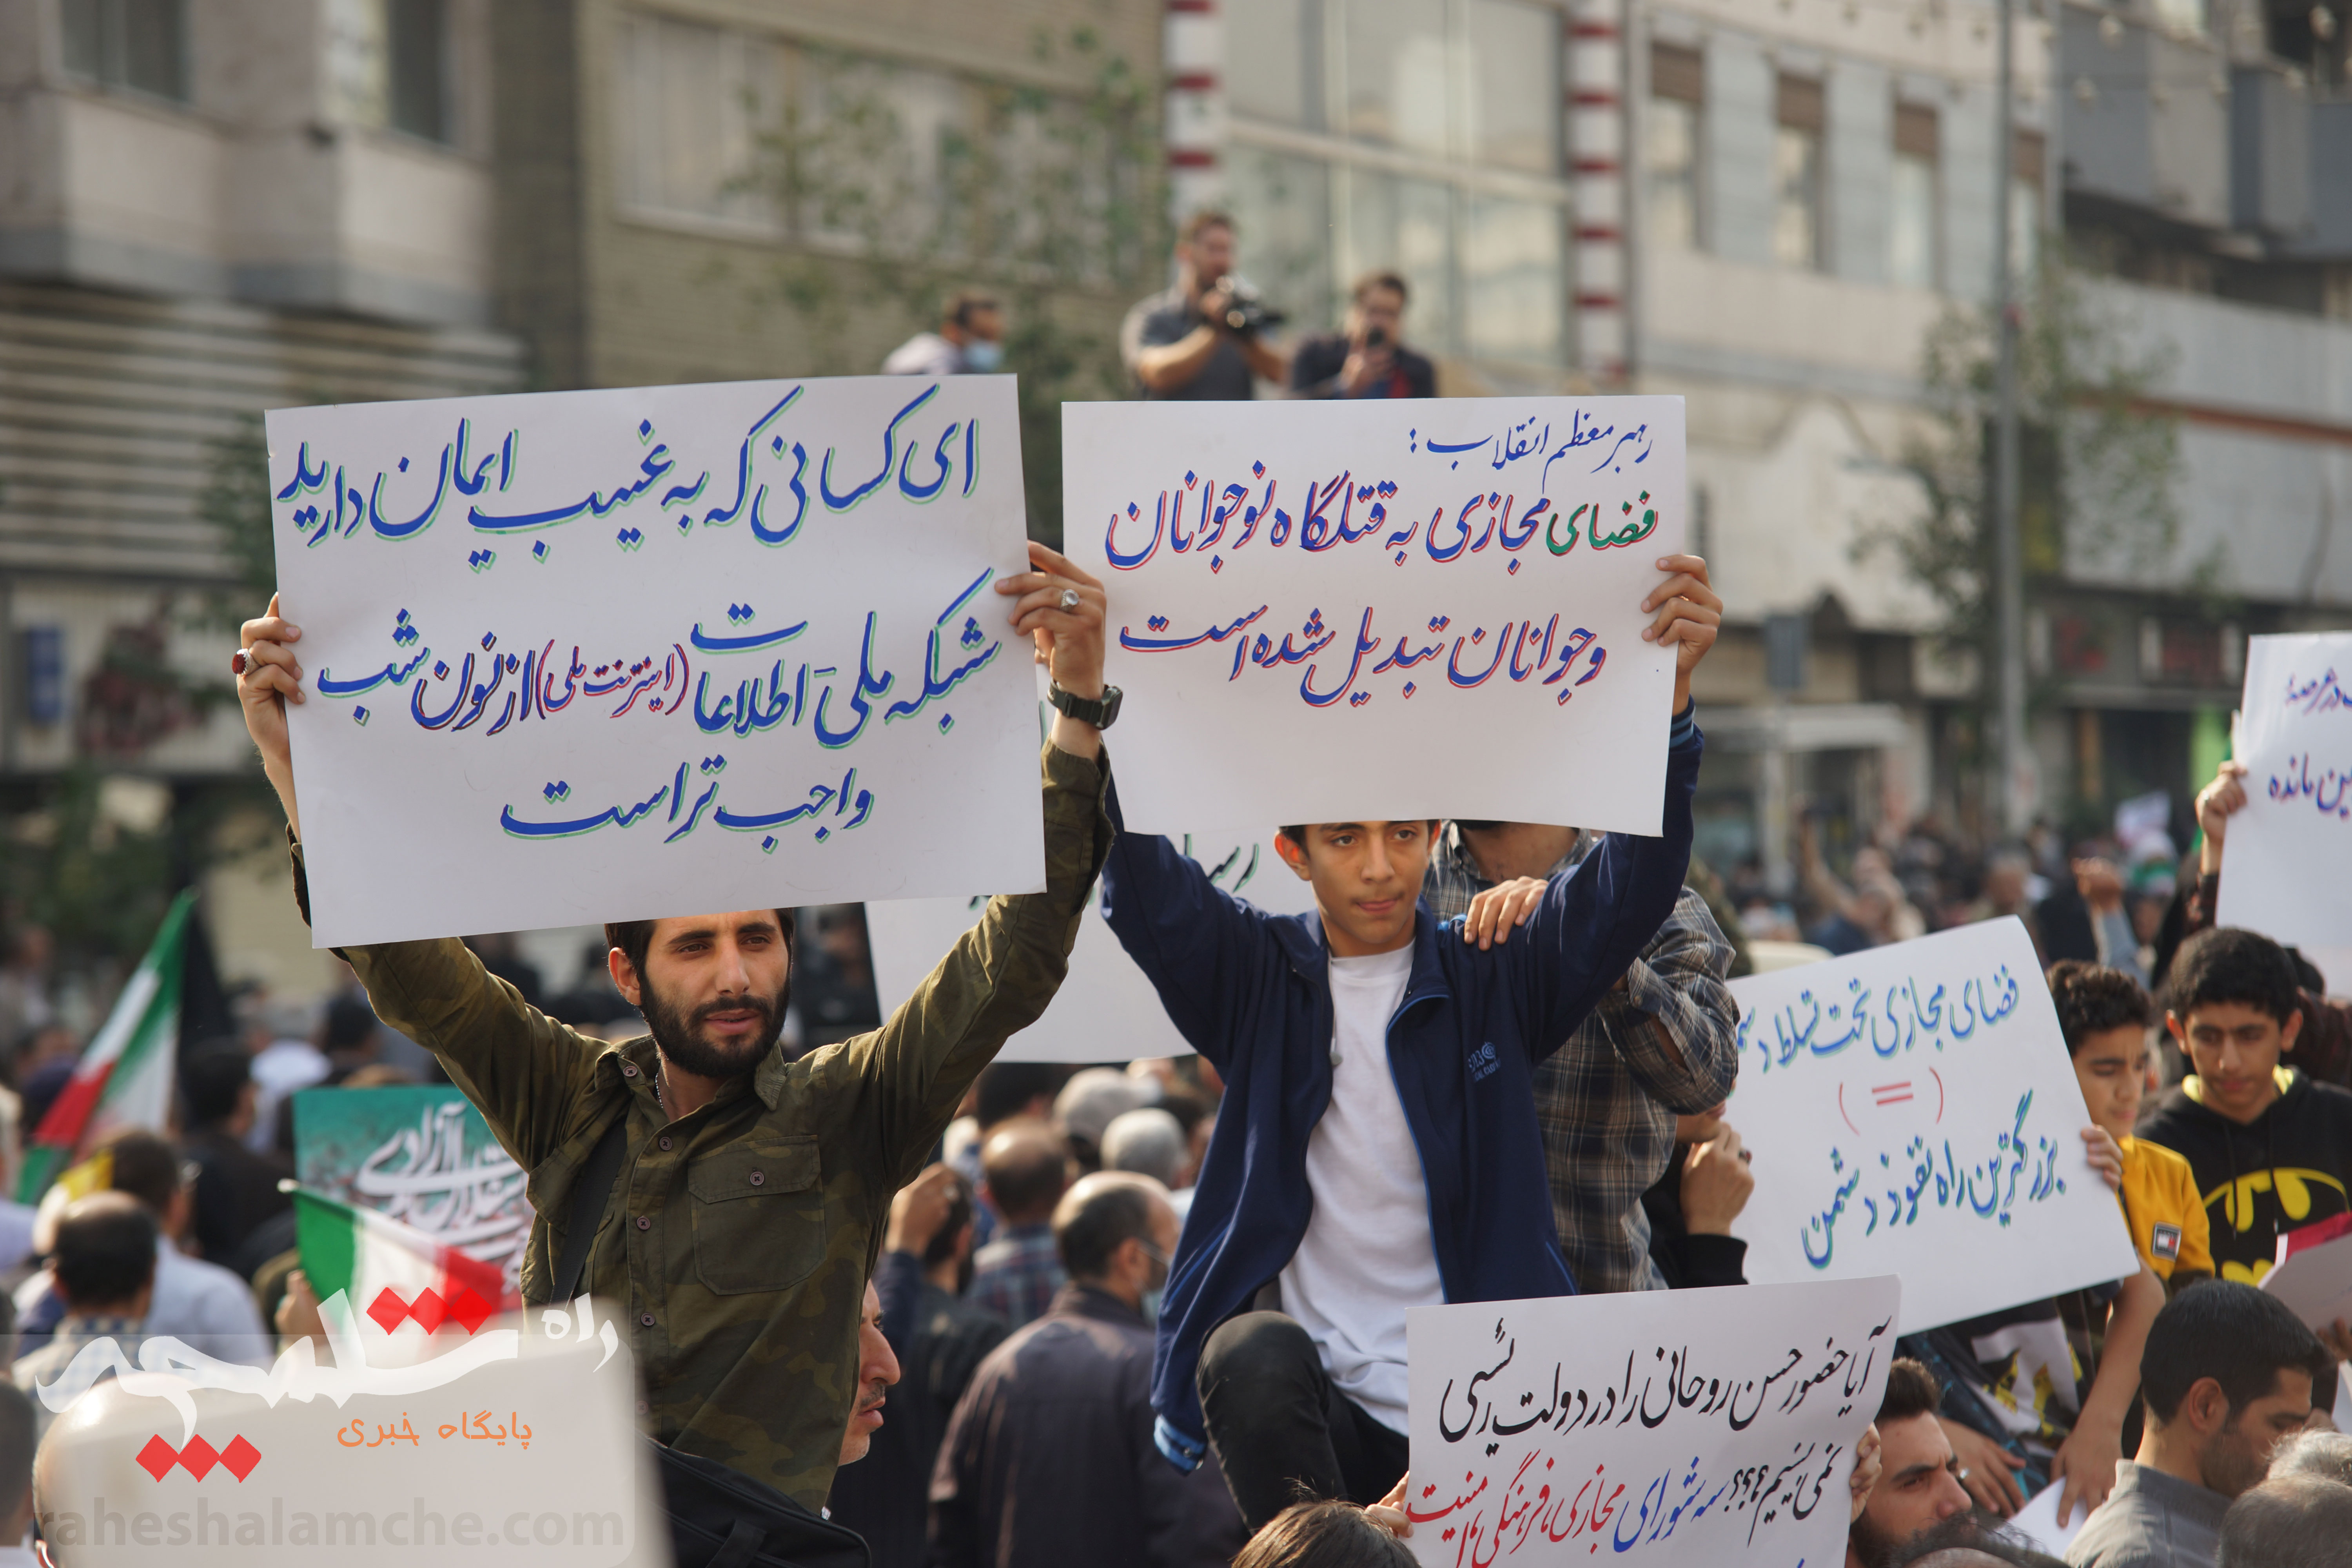 ای کسانی که به غیب ایمان دارید
شبکه ملی اطلاعات (اینترنت ملی) از نون شب
واجب تر است
رهبر معظم انقلاب :
فضای مجازی به قتلگاه نوجوانان
و جوانان تبدیل شده است
فضای مجازی تحت تسلط
( = )
بزرگترین راه نفوذ دشمن
آیا حضور حسن روحانی را در دولت رئسی
نمی بینیم؟؟؟ سه شورای مجازی، فرهنگی، امنیت
مانده
آزادی
راه شلمچه
پایگاه خبری
raheshalamche.com